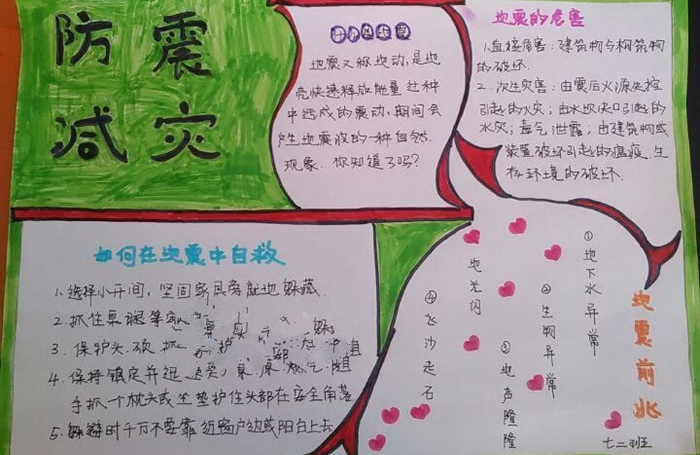 防震
减灾
什么是地震
地震又称地动，是地
壳快速释放能量过程
中造成的震动，期间会
产生地震波的一种自然
现象．你知道了吗？
地震的危害
1.直接危害：建筑物与构筑物
的破坏．
2．次生灾害：由震后火源失控
引起的火灾；由水坝决口引起的
水灾；毒气泄露；由建筑物或
装置破坏引起的瘟疫 生
存环境的破坏．
如何在地震中自救
1．选择小开间，坚固家具旁就地躲藏．
2．抓住桌腿等
3．保护头．颈
4．保持镇定并迅
手抓一个枕头或坐垫护住头部在安全角落
5．躲避时千万不要靠近窗户边或阳台上去
地震前兆
①地下水异常
②生物异常
③地声隆隆
地光闪
④飞沙走石
七二班王